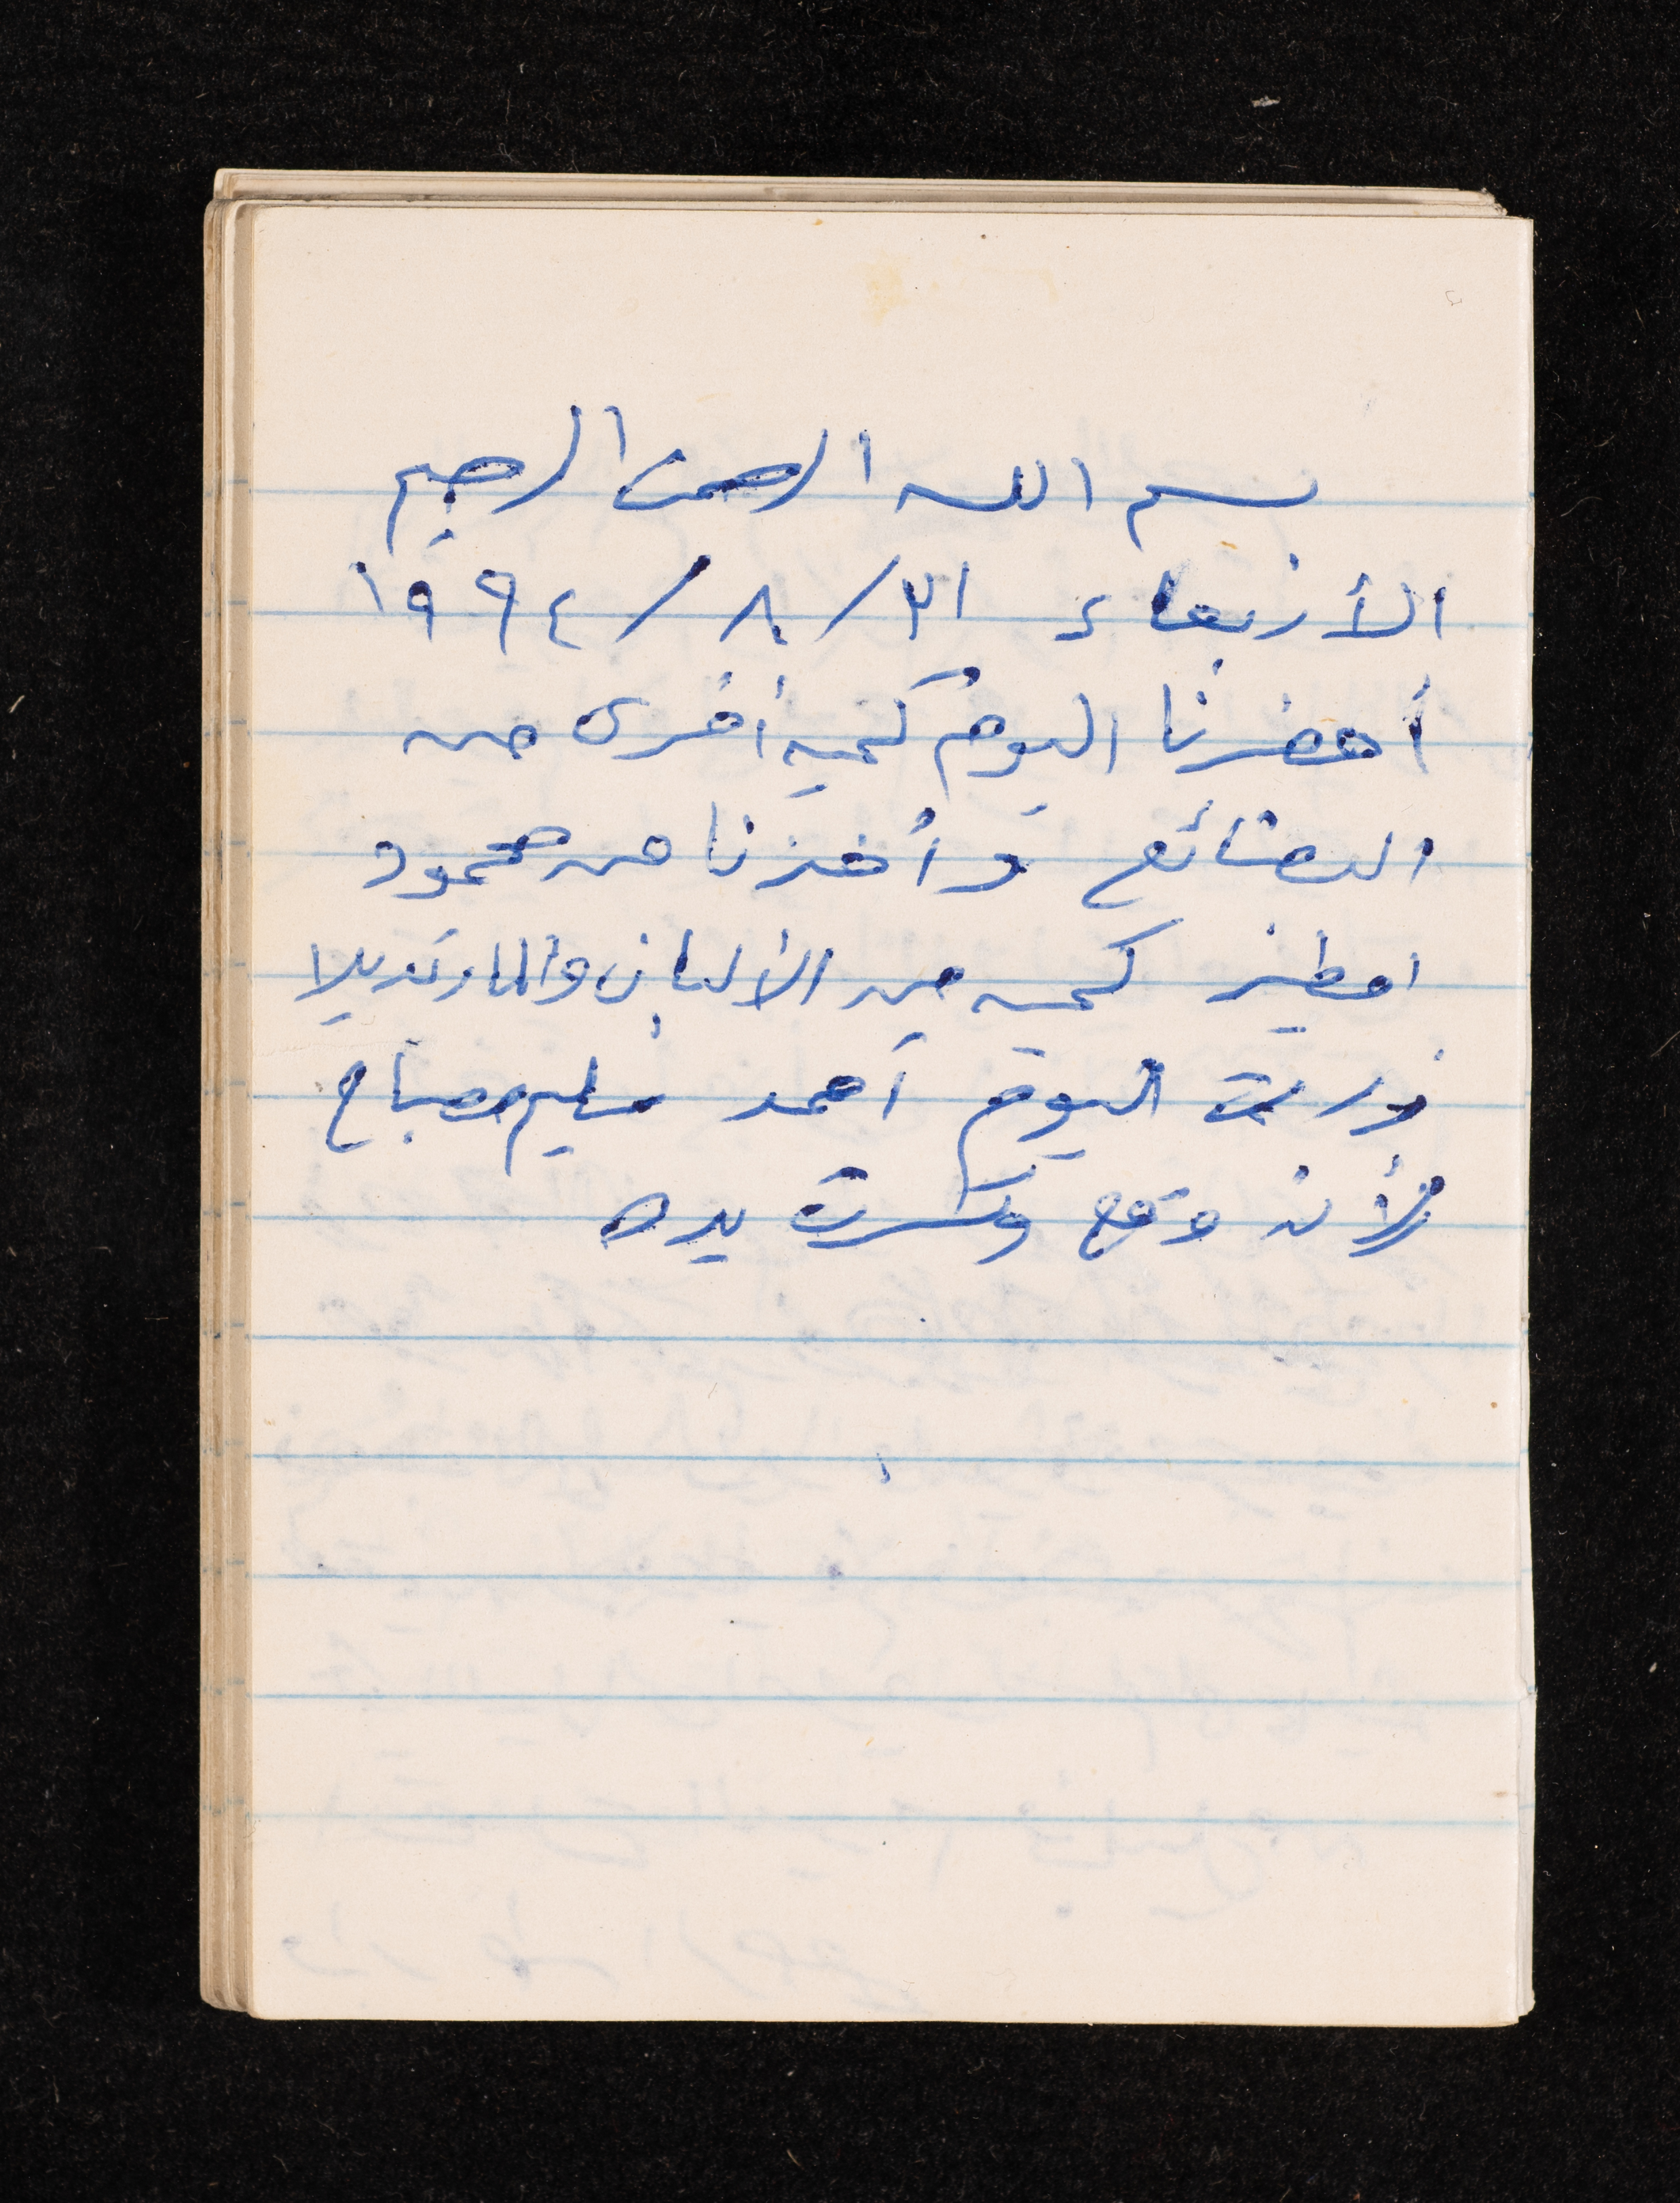 بسم الله الرحمن الرحيم
الأربعاء ٣١/٨/١٩٩٤
أحضرنا اليوم كمية أخرى من
البضائع وأخذنا من محمود
كمية من الألبان والمارتديلا
زرت اليوم أحمد سليم صباح
لأنه وقع وكسرت يده